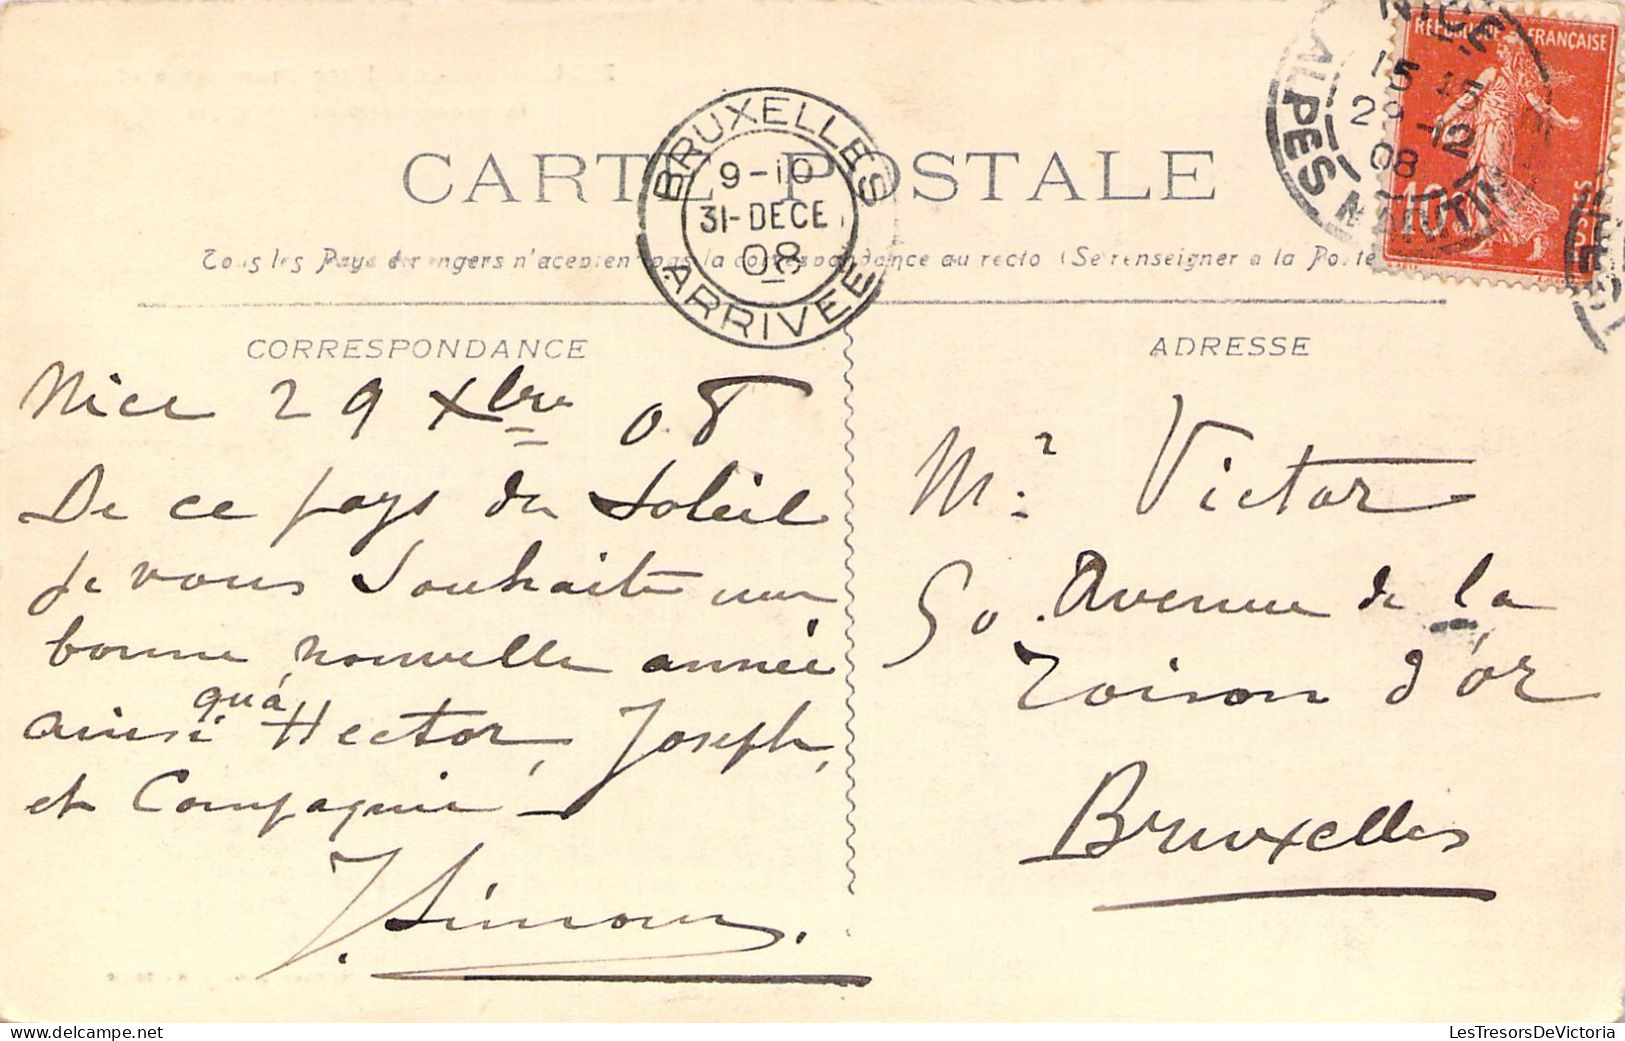 CARTE POSTALE
BRUXELLES
9-10
31-DECE
08
ARRIVEE
NICE
15 15
29-12
08
ALPES MARITIMES
REPUBLIQUE FRANÇAISE
10
Tous les Pays étrangers n'acceptent pas la correspondance au recto (Se renseigner à la Poste
CORRESPONDANCE
Nice 29 Xbre 08
De ce pays du Soleil
je vous Souhaite une
bonne nouvelle année
ainsi qu'à Hector, Joseph,
et Compagnie -
J. Simon.
ADRESSE
Mr: Victor
50. Avenue de la
Toison d'or
Bruxelles
LesTresorsDeVictoria